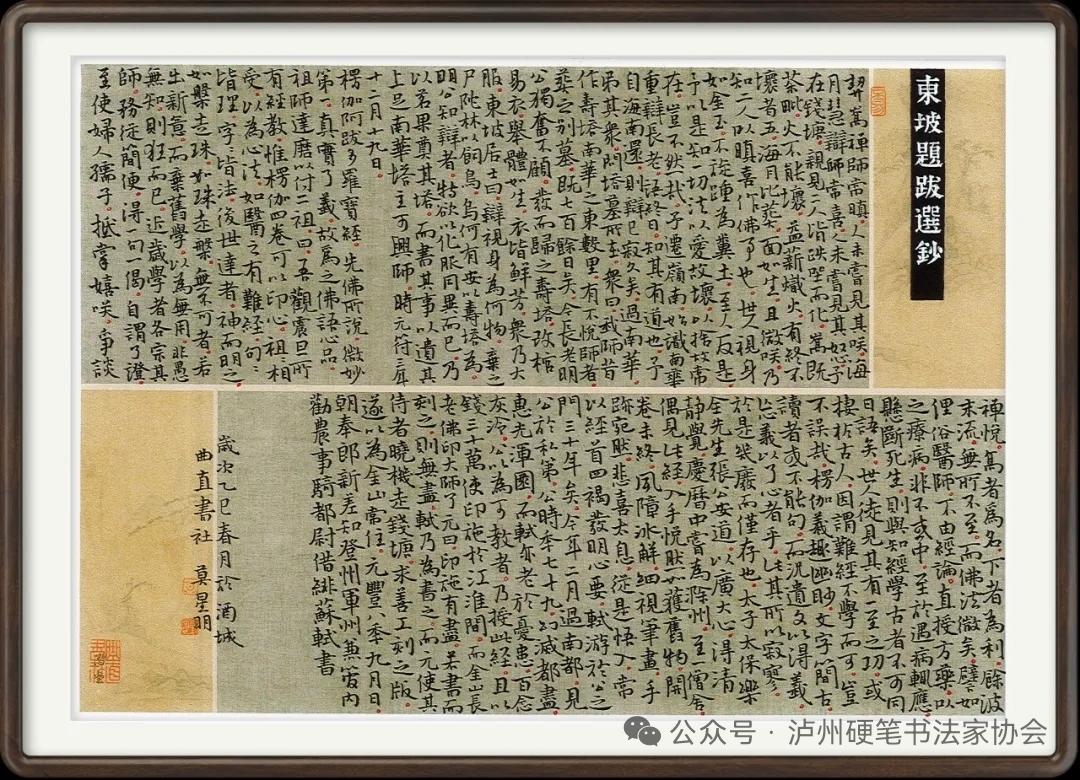 東坡題跋選鈔
契嵩禪師常瞋人未嘗見其咲海
月慧辯師常喜人未嘗見其怒予
在錢塘親見二人皆趺坐而化嵩既
荼毗火不能壞益薪熾火有終不
壞者五海月比葬面如生且微咲乃
知二人以瞋喜作佛了也世人視身
如金玉不旋踵為糞土至人反是
予以是知一切法以愛故壞以捨故常
在豈不然哉予遷嶺南始識南華
重辯長老語終日知其有道也予
自海南還則辯已寂久矣過南華
弔其衆問塔墓所在衆曰我師昔
作壽塔南華之東數里有不悅師者
葬之別墓既七百餘日矣今長老明
公獨奮不顧發而歸之壽塔改棺
易衣舉體如生衣皆鮮芳衆乃大
服東坡居士曰辯視身為何物棄之
尸陁林以飼烏鳥何有安以壽塔為
明公知辯者特欲以化服同異而已乃
以茗果奠其塔而書其事以遺其
上足南華塔主可興師時元符三年
十二月十九日
楞伽阿跋多羅寶經先佛所說微妙
第一真實了義故為之佛語心品
祖師達磨以付二祖曰吾觀震旦所
有經教惟楞伽四卷可以印心祖祖相
受以為心法如醫之有難經句句
皆理字字皆法後世達者神而明之
如槃走珠如珠走槃無不可者若
出新意而棄舊學以為無用非愚
無知則狂而已近歲學者各宗其
師務從簡便得一句一偈自謂了證
至使婦人孺子抵掌嬉咲爭談
禪悅高者為名下者為利餘波
末流無所不至而佛法微矣譬如
俚俗醫師不由經論直授方藥以
之療病非不或中至於遇病輒應
懸斷死生則與知經學古者不可同
日語矣世人徒見其有一至之功或
捷於古人因謂難經不學而可豈
不誤哉楞伽義趣幽眇文字簡古
讀者或不能句而況遺文以得義
忘義以了心者乎此其所以寂寥
於是幾廢而僅存也太子太保樂
全先生張公安道以廣大心得清
靜覺慶曆中嘗為滁州至一僧舍
偶見此經入手恍然如獲舊物開
卷未終夙障冰解細視筆畫手
跡宛然悲喜太息從是悟入常
以經首四偈發明心要軾游於公之
門三十年矣今年二月過南都見
公於私第公時年七十九幻滅都盡
惠光渾圜而軾亦老於憂患百念
灰冷公以為可教者乃授此經且以
錢三十萬使印施於江淮間而金山長
老佛印大師了元曰印施有盡若書而
刻之則無盡軾乃為書之而元使其
侍者曉機走錢塘求善工刻之版
遂以為金山常住元豐八年九月日
朝奉郎新差知登州軍州兼管內
勸農事騎都尉借緋蘇軾書
歲次乙巳春月於酒城
曲直書社 莫星明
公众号 · 泸州硬笔书法家协会